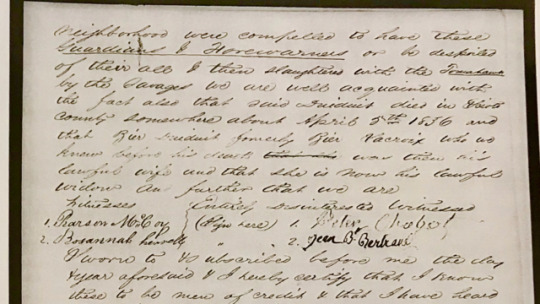 neighborhood were compelled to have these
Guardians & Forewarners or be despoiled
of their all & then slaughtered with the
by the Savages we are well acquainted with
the fact also that said died in
county somewhere about April 5th 1836 and
that formerly Lacroix who we
knew before his death was then his
lawful wife and that she is now his lawful
widow and further that we are
Witnesses Entirely disinterested Witnesses
1. Pearson McCoy (Sign here) 1. Peter Chabot
2. Bosannah " 2. Jean Bt
Sworn to & subscribed before me the day
& year aforesaid & I hereby certify that I know
these to be men of credit & that I have heard